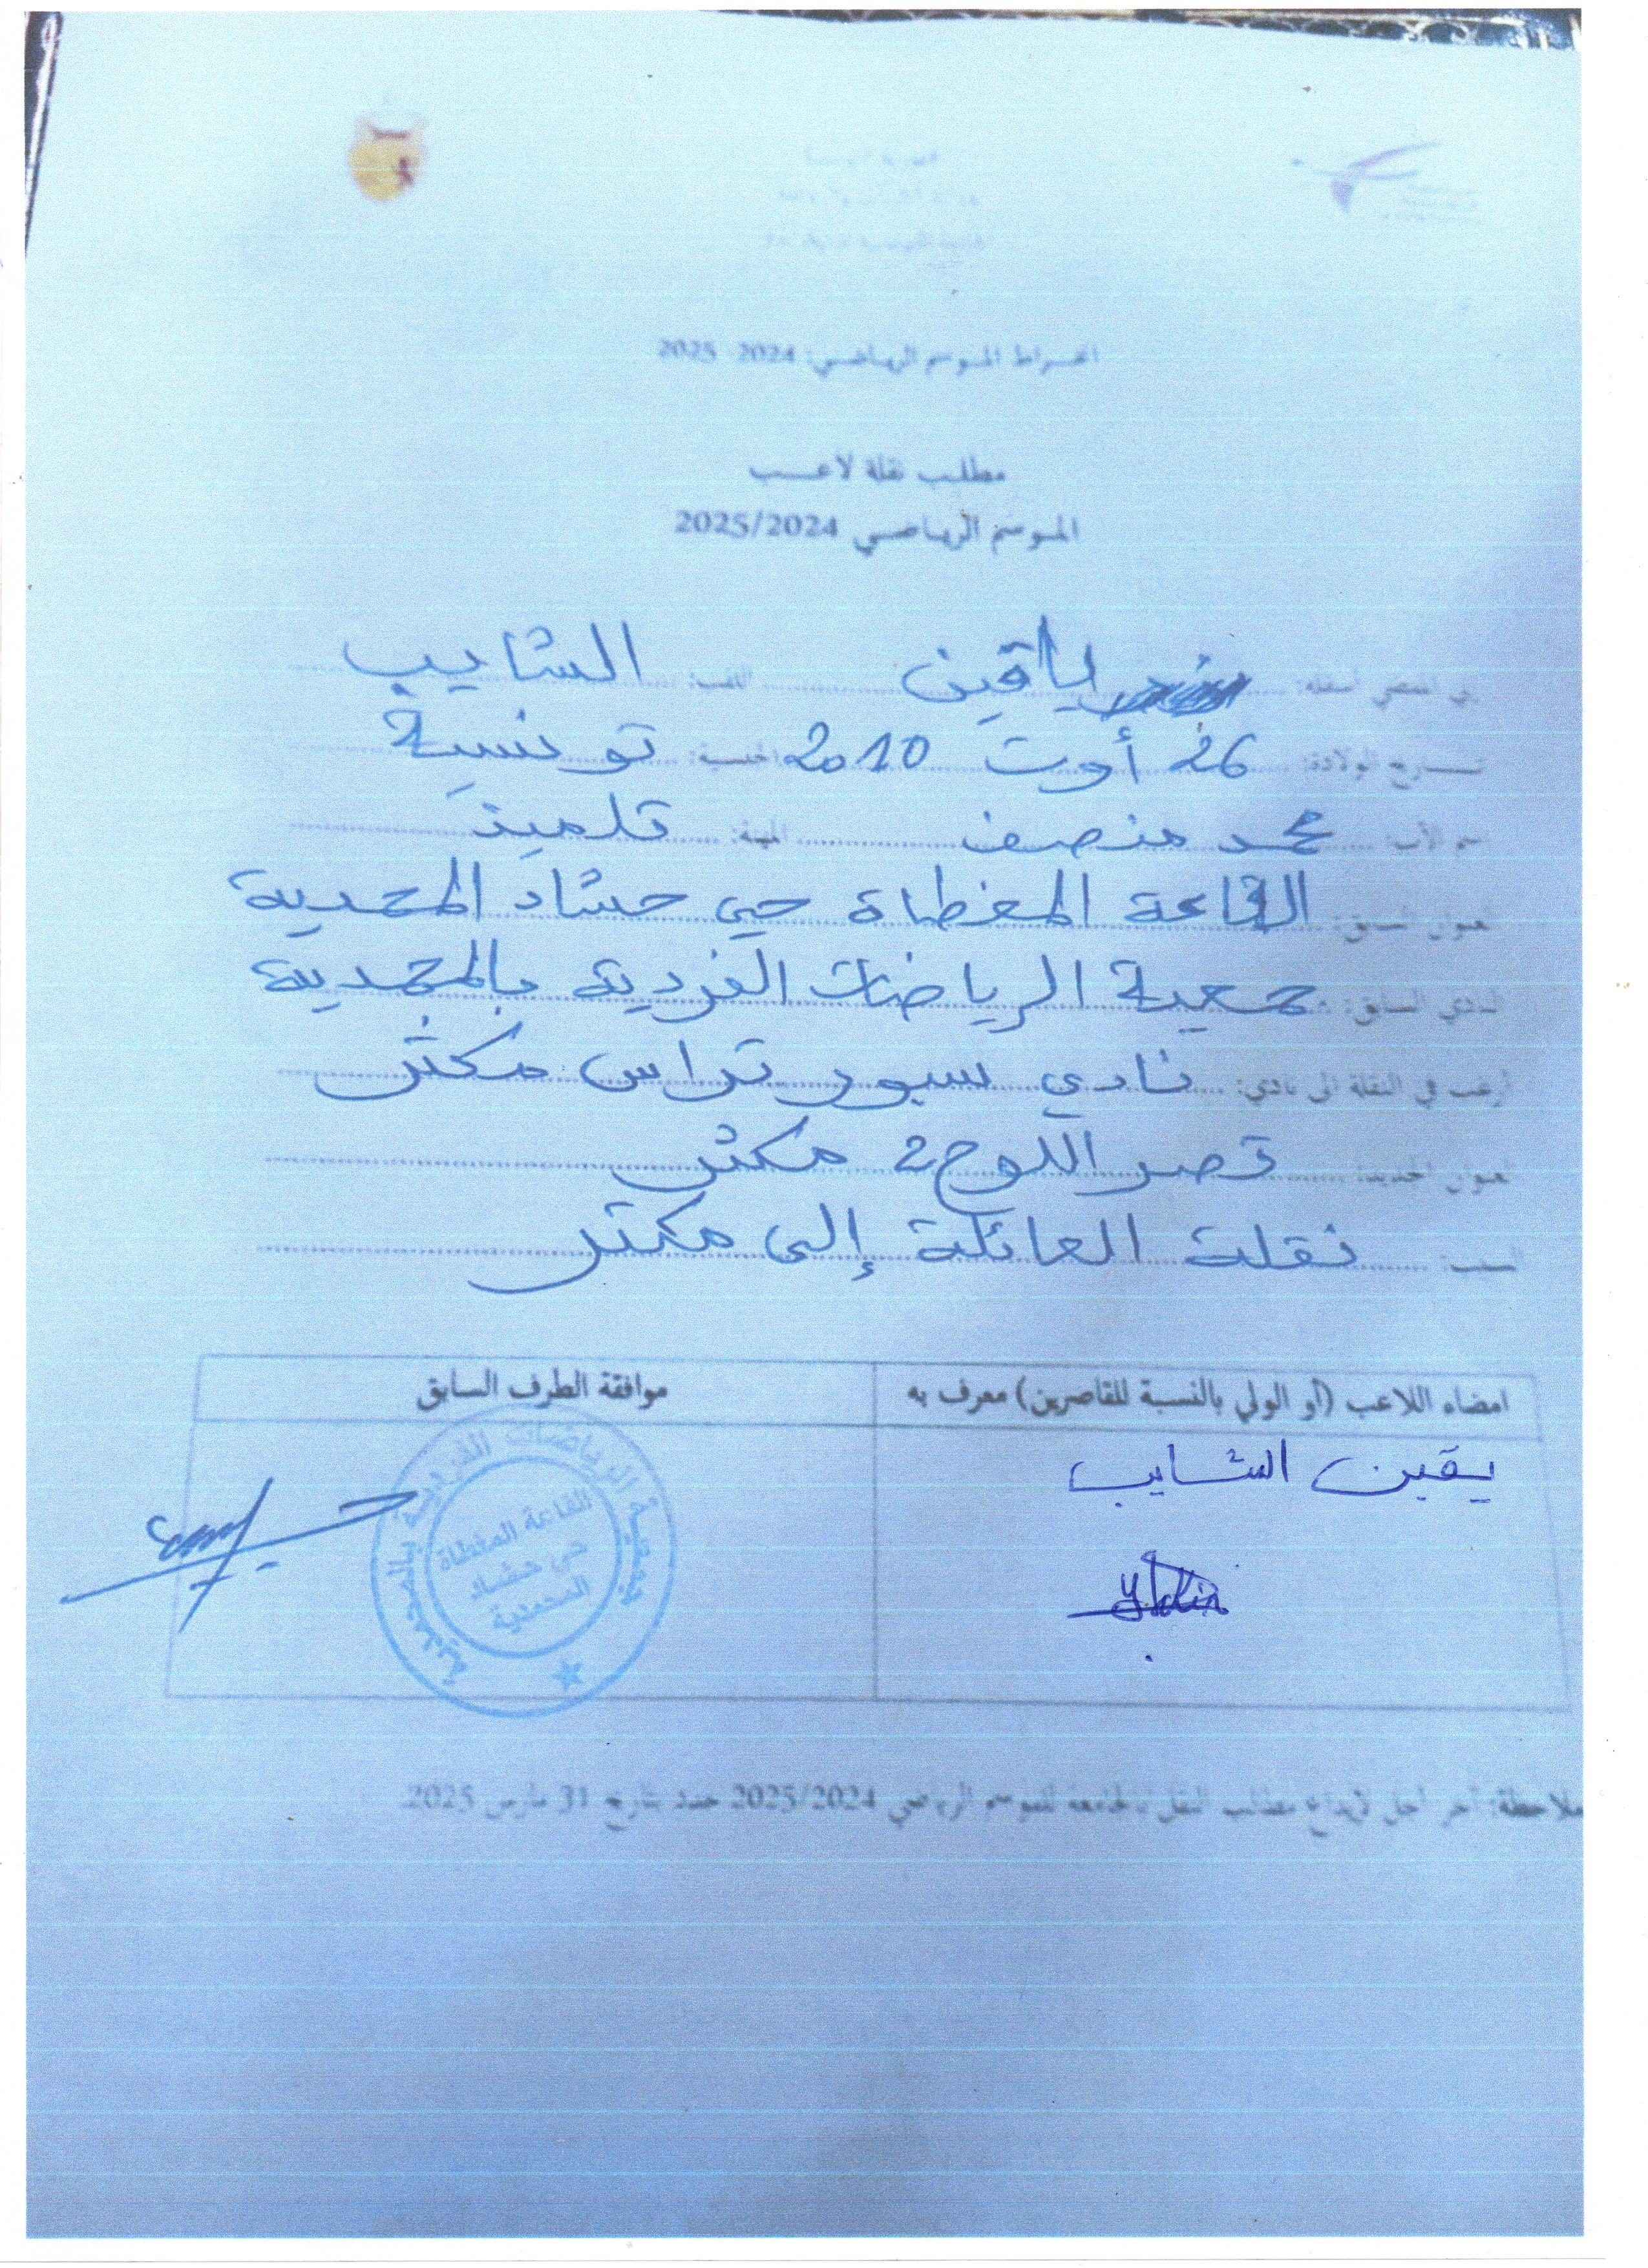 انخراط الموسم الرياضي: 2024 2025
مطلب نقلة لاعب
الموسم الرياضي 2025/2024
إني الممضي أسفله: ياقين اللقب: الشايب
تاريخ الولادة: 26 أوت 2010 الجنسية: تونسية
اسم الأب: محمد منصف المهنة: تلميذ
العنوان السابق: القاعة المغطاة حي حشاد المحمدية
النادي السابق: جمعية الرياضات الفردية بالمحمدية
أرغب في النقلة الى نادي: نادي سبور تراس مكثر
العنوان الجديد: قصر اللوح 2 مكثر
السبب: نقلت العائلة إلى مكثر
امضاء اللاعب (أو الولي بالنسبة للقاصرين) معرف به
موافقة الطرف السابق
يقين الشايب
جمعية الرياضات الفردية بالمحمدية
القاعة المغطاة
حي حشاد
المحمدية
ملاحظة: آخر أجل لإيداع مطالب النقل بالجامعة للموسم الرياضي 2025/2024 حدد بتاريخ 31 مارس 2025